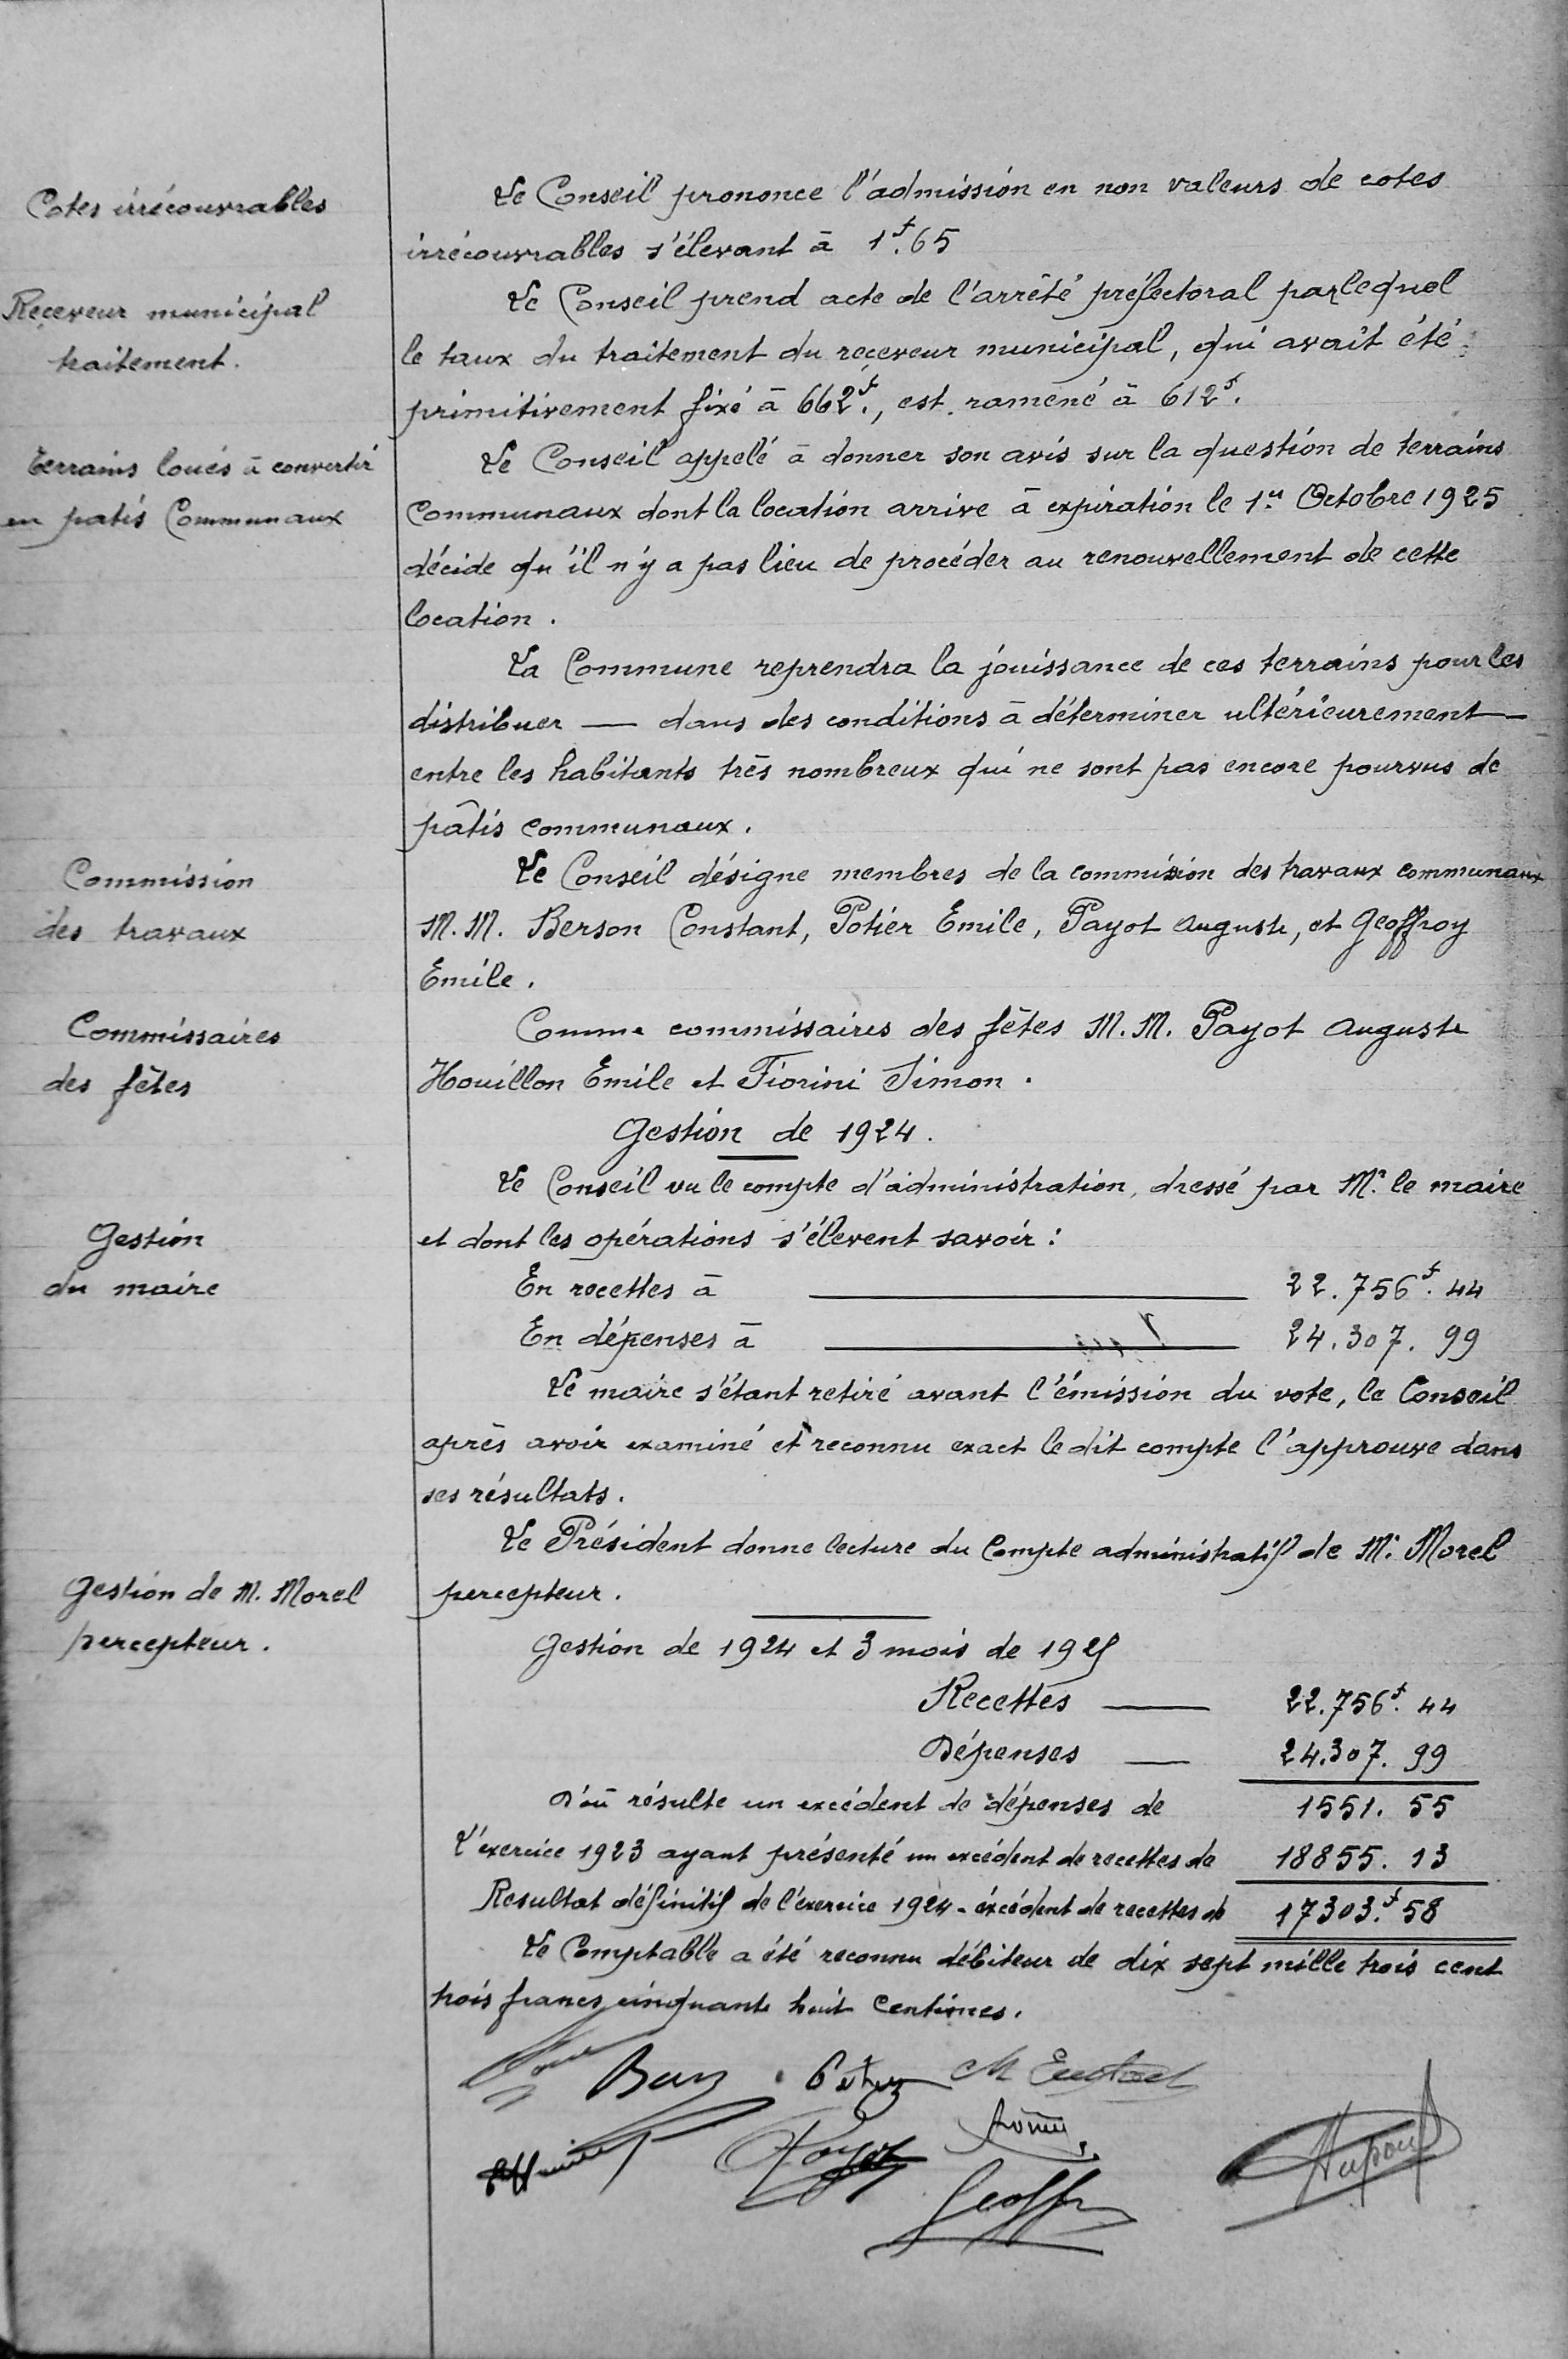 Cotes irrécouvrables
Le Conseil prononce l'admission en non valeurs de cotes
irrécouvrables s'élevant à 1f.65
Receveur municipal
traitement.
Le Conseil prend acte de l'arrêté préfectoral par lequel
le taux du traitement du receveur municipal, qui avait été
primitivement fixé à 662f., est ramené à 612f.
Terrains loués à convertir
en patis Communaux
Le Conseil appelé à donner son avis sur la question de terrains
communaux dont la location arrive à expiration le 1er Octobre 1925
décide qu'il n'y a pas lieu de procéder au renouvellement de cette
location.
La Commune reprendra la jouissance de ces terrains pour les
distribuer — dans des conditions à déterminer ultérieurement —
entre les habitants très nombreux qui ne sont pas encore pourvus de
pâtis communaux.
Commission
des travaux
Le Conseil désigne membres de la commission des travaux communaux
M.M. Berson Constant, Potier Emile, Payot Auguste, et Geoffroy
Emile.
Commissaires
des fêtes
Comme commissaires des fêtes M.M. Payot Auguste
Houillon Emile et Fiorini Simon.
Gestion de 1924.
Gestion
du maire
Le Conseil vu le compte d'administration, dressé par Mr. le maire
et dont les opérations s'élevent savoir :
En recettes à — 22.756f.44
En dépenses à — 24.307.99
Le maire s'étant retiré avant l'émission du vote, le Conseil
après avoir examiné et reconnu exact le dit compte l'approuve dans
ses résultats.
Gestion de M. Morel
percepteur.
Le Président donne lecture du Compte administratif de Mr. Morel
percepteur.
Gestion de 1924 et 3 mois de 1925
Recettes — 22.756f.44
Dépenses — 24.307.99
D'où résulte un excédent de dépenses de 1551.55
L'exercice 1923 ayant présenté un excédent de recettes de 18855.13
Resultat définitif de l'éxercice 1924 - éxcédent de recettes de 17303.f58
Le Comptable a été reconnu débiteur de dix sept mille trois cent
trois francs cinquante huit Centimes.
Payot
Geoffr